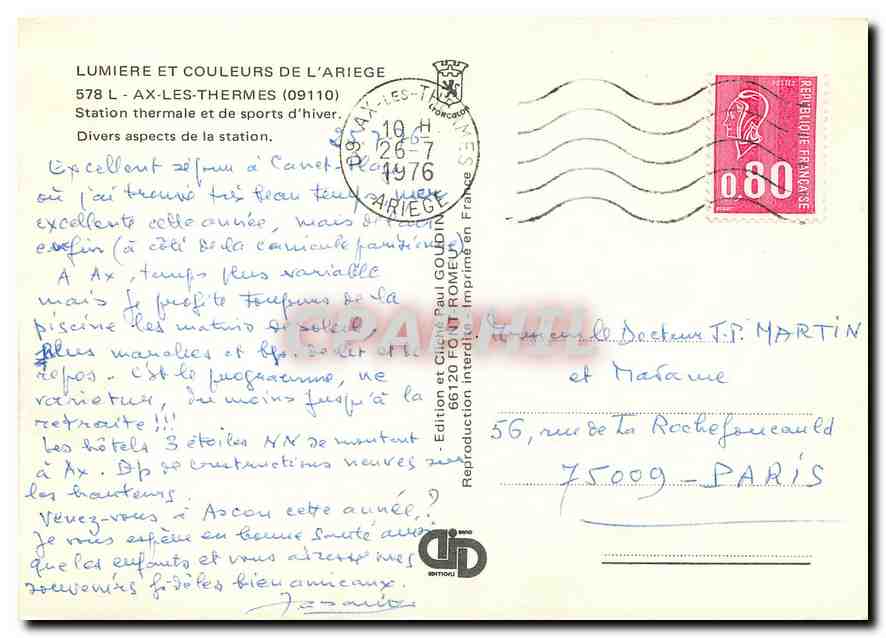 LUMIERE ET COULEURS DE L'ARIEGE
578 L - AX-LES-THERMES (09110)
Station thermale et de sports d'hiver.
Divers aspects de la station.
LYONCOLOR
09 AX-LES-THERMES
10 H
26-7
1976
ARIEGE
POSTES
REPUBLIQUE FRANÇAISE
0,80
Excellent séjour à Canet-Plage
où j'ai trouvé très beau temps, mer
excellente cette année, mais de l'air
enfin (à côté de la canicule parisienne)
A Ax, temps plus variable
mais je profite toujours de la
piscine les matins de soleil.
plus marches et de lit et de
repos. C'est le programme, ne
varietur, du moins jusqu'à la
retraite!!!
Les hôtels 3 étoiles NN se montent
à Ax. Bp de constructions neuves sur
les hauteurs.
Venez-vous à Ascou cette année?
Je vous espère en bonne santé ainsi
que les enfants et vous adresse mes
souvenirs fidèles bien amicaux.
- Edition et Cliché Paul GOUDIN -
66120 FONT-ROMEU
Reproduction interdite - Imprimé en France
CPAPHIL
Monsieur le Docteur J.P. MARTIN
et Madame
56, rue de La Rochefoucauld
75009 - PARIS
EDITIONS